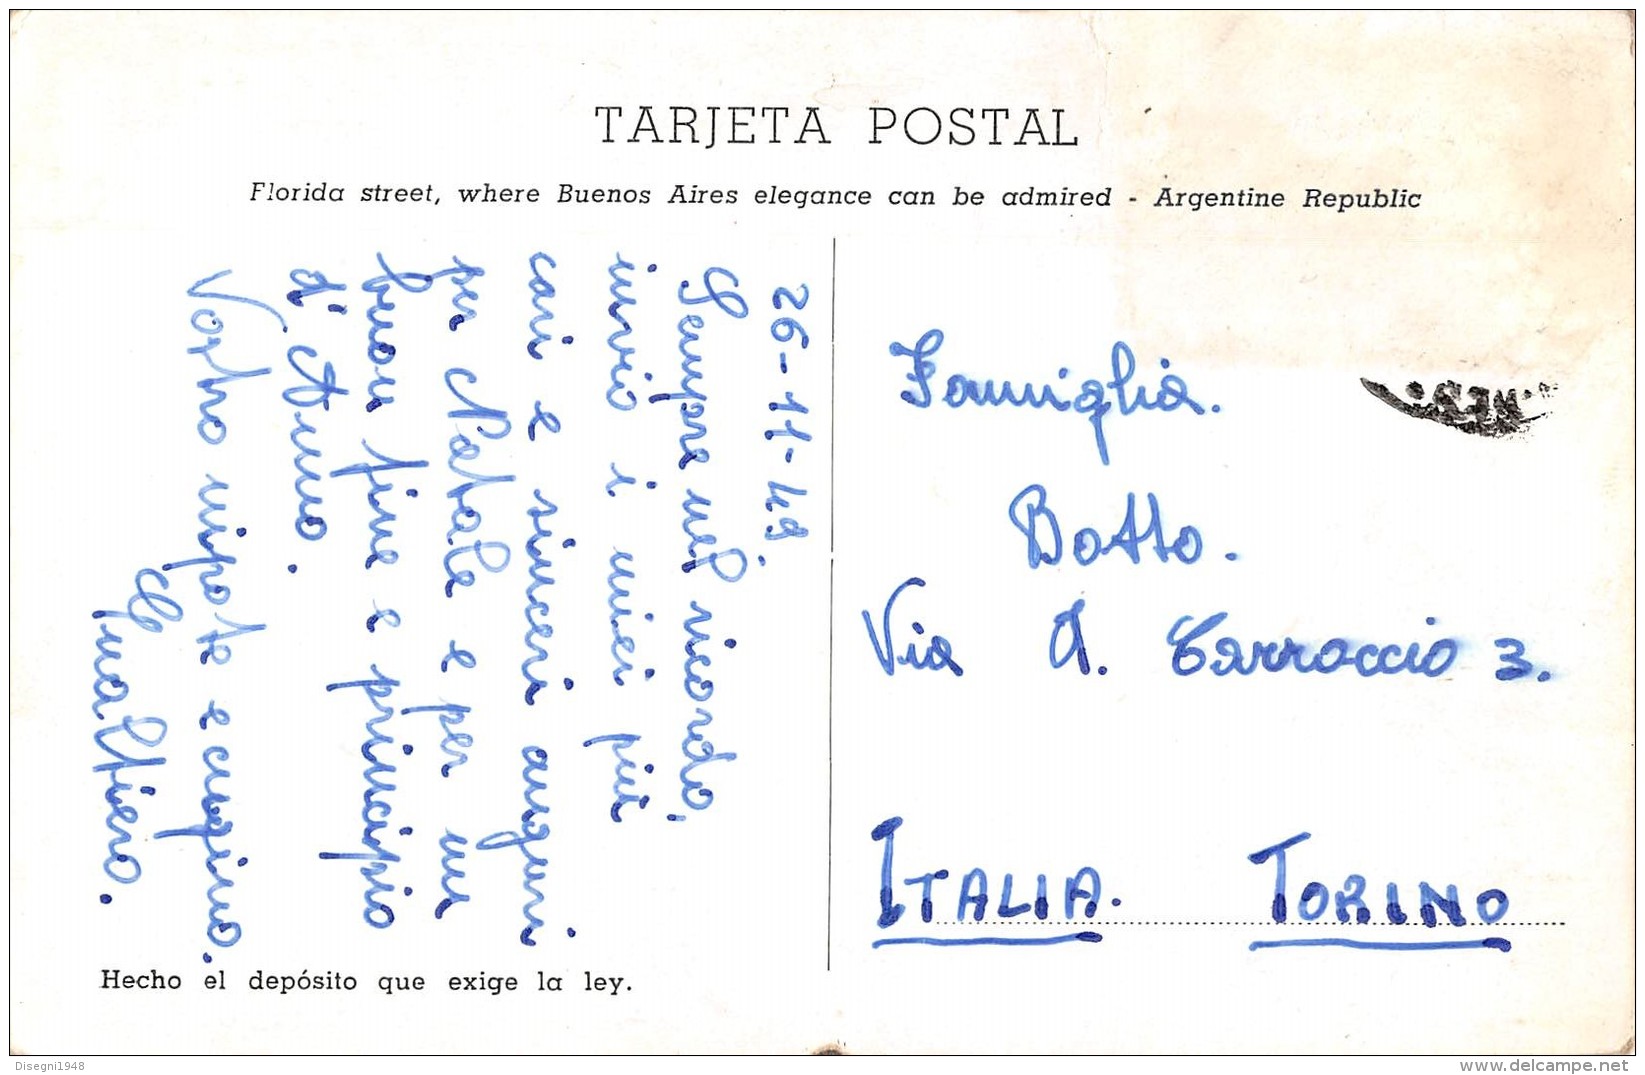 TARJETA POSTAL
Florida street, where Buenos Aires elegance can be admired - Argentine Republic
26-11-49.
Sempre nel ricordo,
invio i miei più
cari e sinceri auguri.
per Natale e per un
buon fine e principio
d'Anno.
Vostro nipote e cugino.
Gualtiero.
Famiglia.
Botto.
Via A. Carroccio 3.
ITALIA. TORINO
Hecho el depósito que exige la ley.
Disegni1948
www.delcampe.net